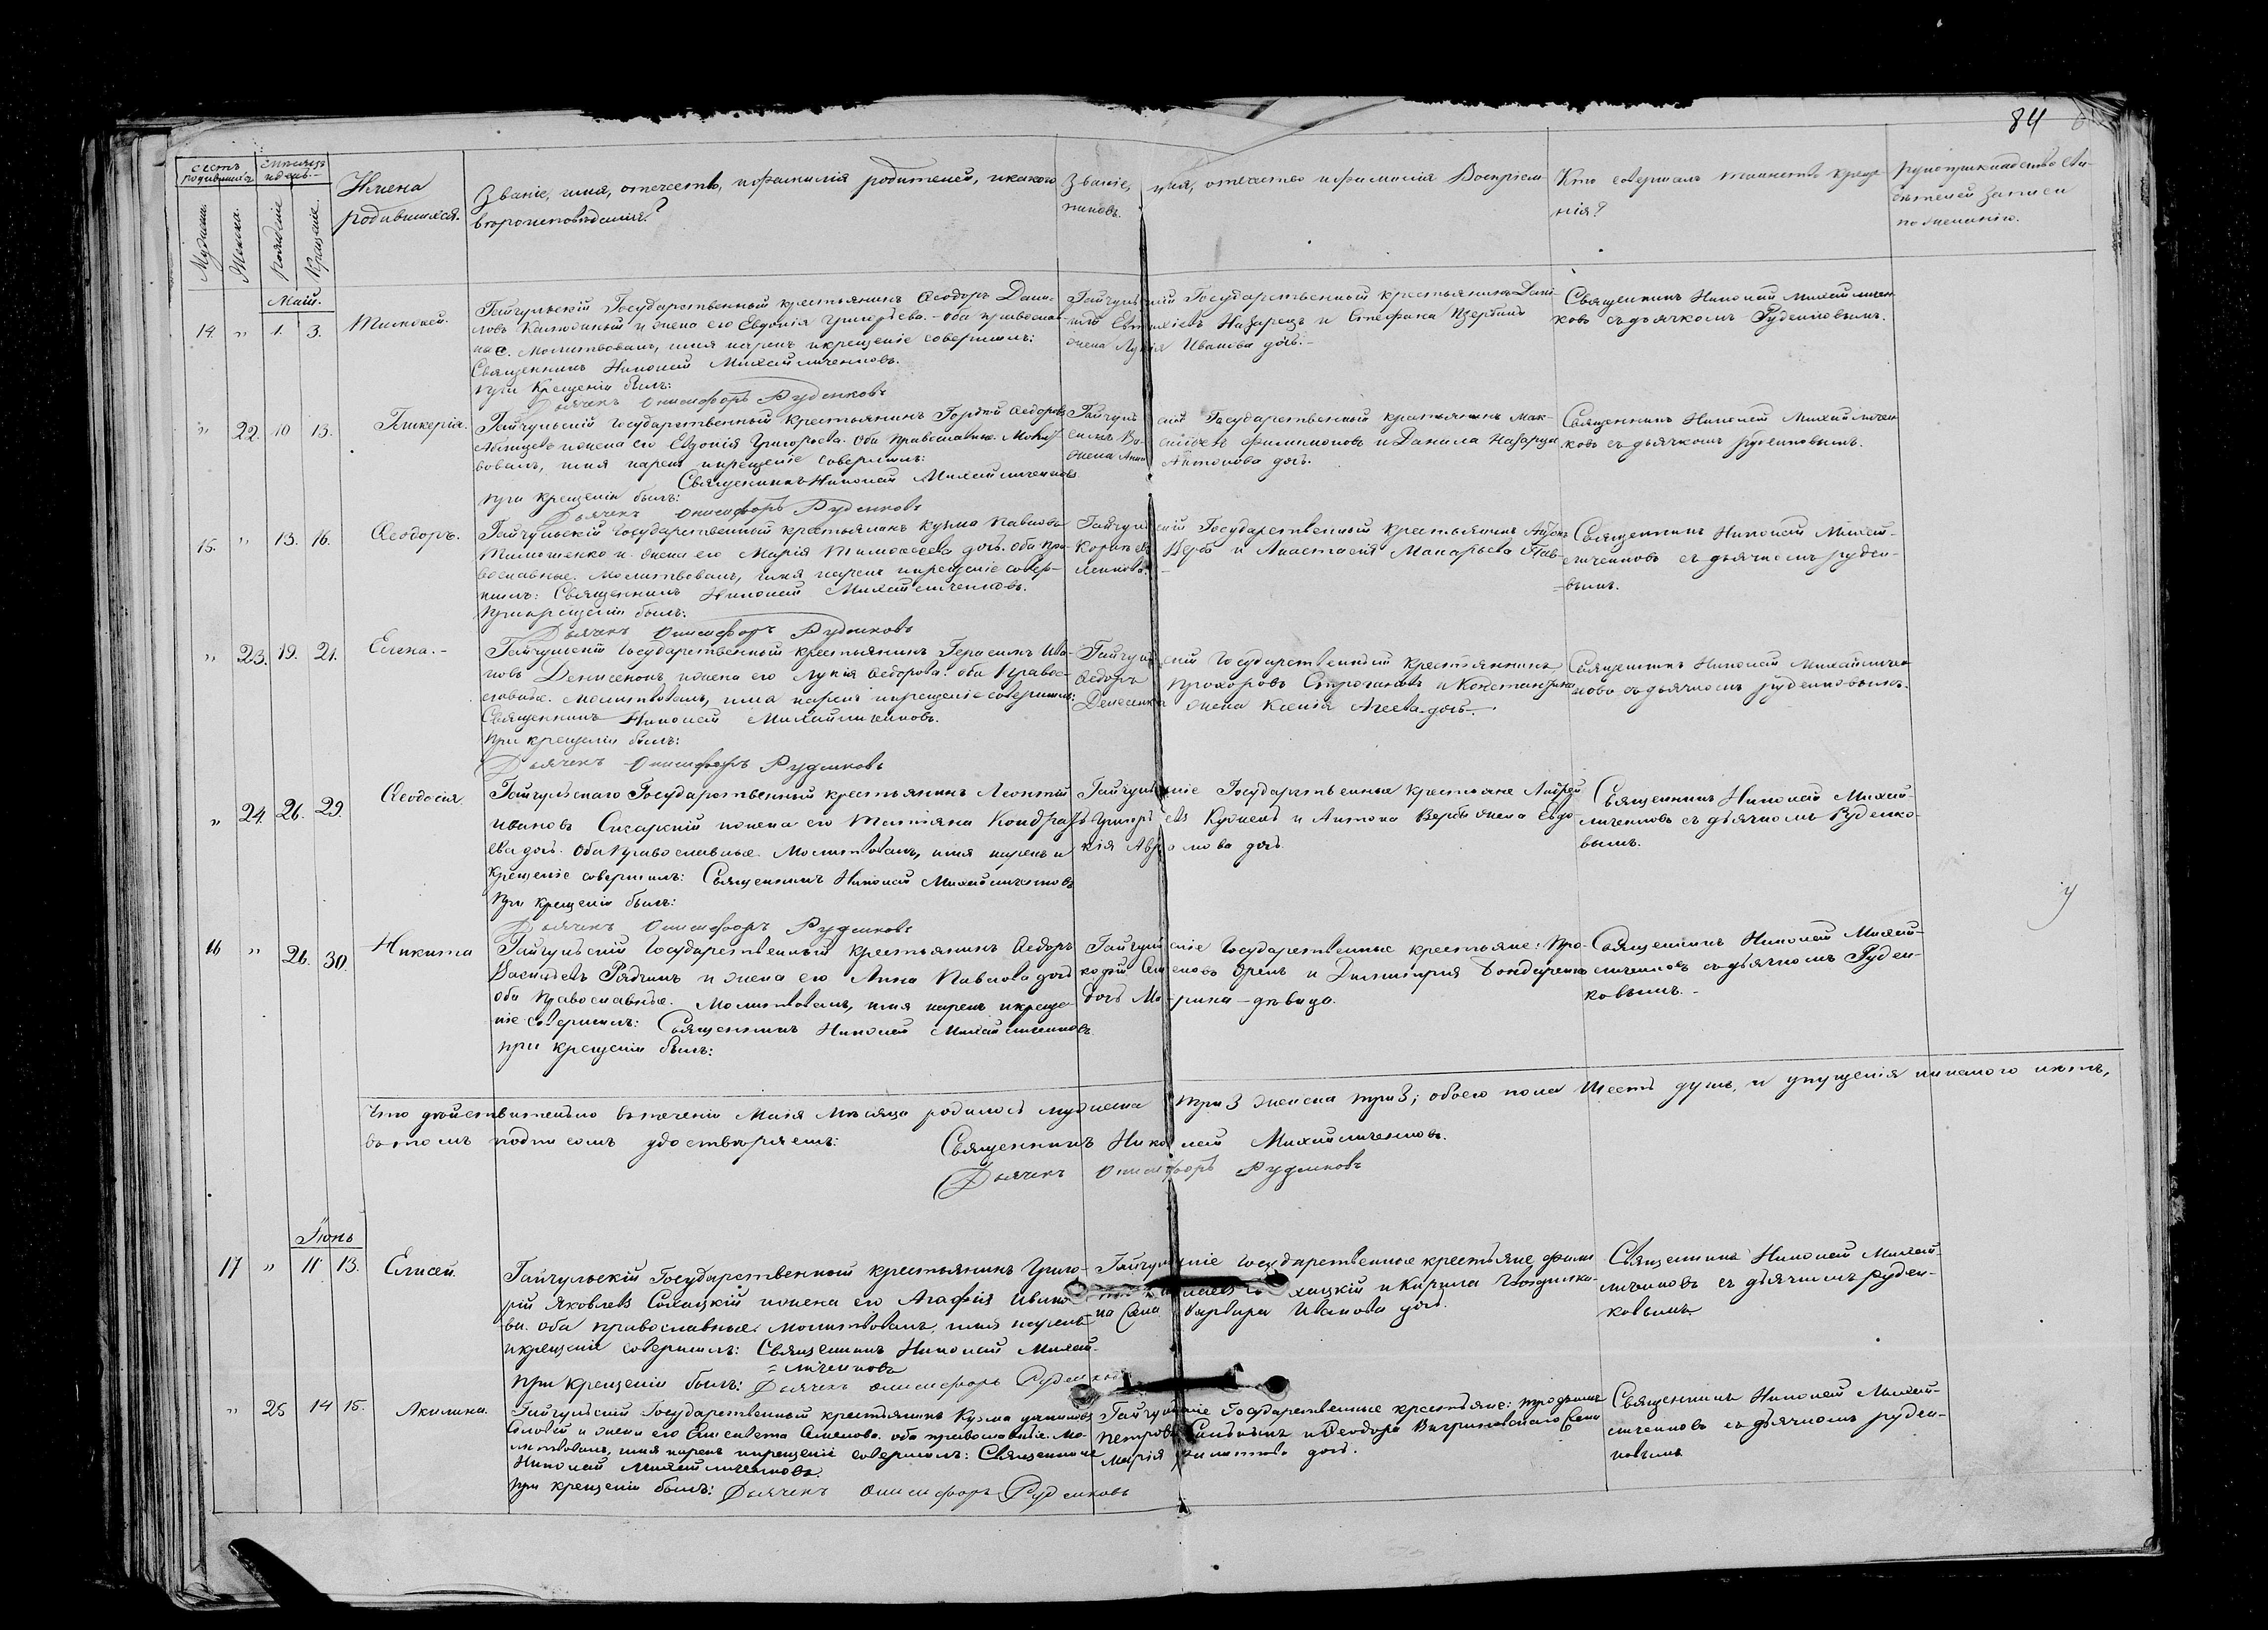 84
счетъ родившихся
мѣсяцъ и день
Мужеска.
Женска.
рожденіе
Крещеніе.
Имена
родившихся.
Званіе, имя, отечество, и фамилія родителей, и какого
вѣроисповѣданія?
Званіе, имя, отечество и фамилія Воспріем-
никовъ.
Кто совершалъ таинство креще-
нія?
рукоприкладство сви-
дѣтелей записи
по желанію.
Маій.
14. " 1. 3.
Гайчульскій Государственный крестьянинъ Ѳеодоръ Дани-
ловъ и жена его Евдокія Григорьева. - оба православ-
ные. Молитвовалъ, имя нарекъ и крещеніе совершилъ:
Священникъ Николай Михайличенковъ.
при Крещеніи былъ:
Дьячекъ Онисифоръ Руденковъ
Гайчульскій Государственный крестьянинъ Дани-
илъ Назарецъ и Стефана
жена Лукія Иванова дочь. -
Священникъ Николай Михайличен-
ковъ съ дьячкомъ Руденковымъ.
" 22. 10 13.
Гликерія.
Гайчульскій государственный крестьянинъ Гордѣй Ѳедоровъ
и жена его Евдокія Григорьева. Оба православные. Молит-
вовалъ, имя нарекъ и крещеніе совершилъ:
Священникъ Николай Михайличенковъ
при крещеніи былъ:
Дьячекъ Онисифоръ Руденковъ
Гайчульскій Государственный крестьянинъ Мак-
Филимоновъ и Данила Назарца
жена Анна Антонова дочь.
Священникъ Николай Михайличен-
ковъ съ дьячкомъ Руденковымъ.
15. " 13. 16.
Ѳеодоръ.
Гайчульскій государственный крестьянинъ Кузма Павловъ
Тимошенко и жена его Марія Тимоѳеева дочь. оба пра-
вославные. Молитвовалъ, имя нарекъ и крещеніе совер-
шилъ: Священникъ Николай Михайличенковъ.
При крещеніи былъ:
Дьячекъ Онисифоръ Руденковъ
Гайчульскій Государственный крестьянинъ Антонъ
Верба и Анастасія Макарьева Пав-
ленкова.
Священникъ Николай Михай-
личенковъ съ дьячкомъ Руден-
вымъ.
" 23. 19. 21.
Елена. -
Гайчульскій государственный крестьянинъ Герасимъ Ива-
новъ Денисенко и жена его Лукія Ѳедорова. оба Право-
славные. молитвовалъ, имя нарекъ и крещеніе совершилъ:
Священникъ Николай Михайличенковъ.
При крещеніи былъ:
Дьячекъ Онисифоръ Руденковъ
Гайчульскій государственный крестьянинъ
Ѳедоръ Прохоровъ Строгановъ и Константина
Денесенка жена Ксенія Агеева дочь.
Священникъ Николай Михайличен-
ковъ съ дьячкомъ Руденковымъ.
" 24. 26. 29.
Ѳеодосія.
Гайчульскаго Государственный крестьянинъ Леонтій
Ивановъ Сикарскій и жена его Татіяна Кондрать-
ева дочь. Оба Православные. Молитвовалъ, имя нарекъ и
крещеніе совершилъ: Священникъ Николай Михайличенковъ
При крещеніи былъ:
Дьячекъ Онисифоръ Руденковъ
Гайчульскіе Государственные крестьяне Андрей
Григорьевъ и Антона Вербы жена Евдо-
кія дочь.
Священникъ Николай Михай-
личенковъ съ дьячкомъ Руденко-
вымъ.
16 " 26. 30.
Никита
Гайчульскій Государственный крестьянинъ Ѳедоръ
Васильевъ Рядчинъ и жена его Анна Павлова дочь
оба православные. Молитвовалъ, имя нарекъ и креще-
ніе совершилъ: Священникъ Николай Михайличенковъ
при крещеніи былъ:
Гайчульскіе государственные крестьяне: Про-
кофій Семеновъ и Димитрія Бондаренко
дочь Марина - дѣвица.
Священникъ Николай Михай-
личенковъ съ дьячкомъ Руден-
ковымъ. -
Что дѣйствительно въ теченіи Маія Мѣсяца родилось мужеска три 3 женска три 3; обоего пола шесть душъ, и упущенія никакого нѣтъ,
въ томъ подписомъ удостовѣряемъ: Священникъ Николай Михайличенковъ.
Дьячекъ Онисифоръ Руденковъ
Іюнь
17 " 11. 13.
Елисей.
Гайчульскій Государственный крестьянинъ Григо-
рій Яковлевъ и жена его Агафія Ивано-
ва. оба православные. молитвовалъ, имя нарекъ
и крещеніе совершилъ: Священникъ Николай Михай-
личенковъ
При крещеніи былъ: Дьячекъ Онисифоръ Руденковъ
Гайчульскіе государственные крестьяне
и Кирила
Варвара Иванова дочь.
Священникъ Николай Михай-
личенковъ съ дьячкомъ Руден-
ковымъ
" 25 14 15.
Акилина.
Гайчульскій Государственный крестьянинъ Кузма
и жена его Елисавета Семенова. оба православные. Мо-
литвовалъ, имя нарекъ и крещеніе совершилъ: Священникъ
Николай Михайличенковъ.
При крещеніи былъ: Дьячекъ Онисифоръ Руденковъ
Гайчульскіе Государственные крестьяне: Трофимъ
Петровъ и Ѳеодора
Марія дочь.
Священникъ Николай Михай-
личенковъ съ дьячкомъ Руден-
ковымъ